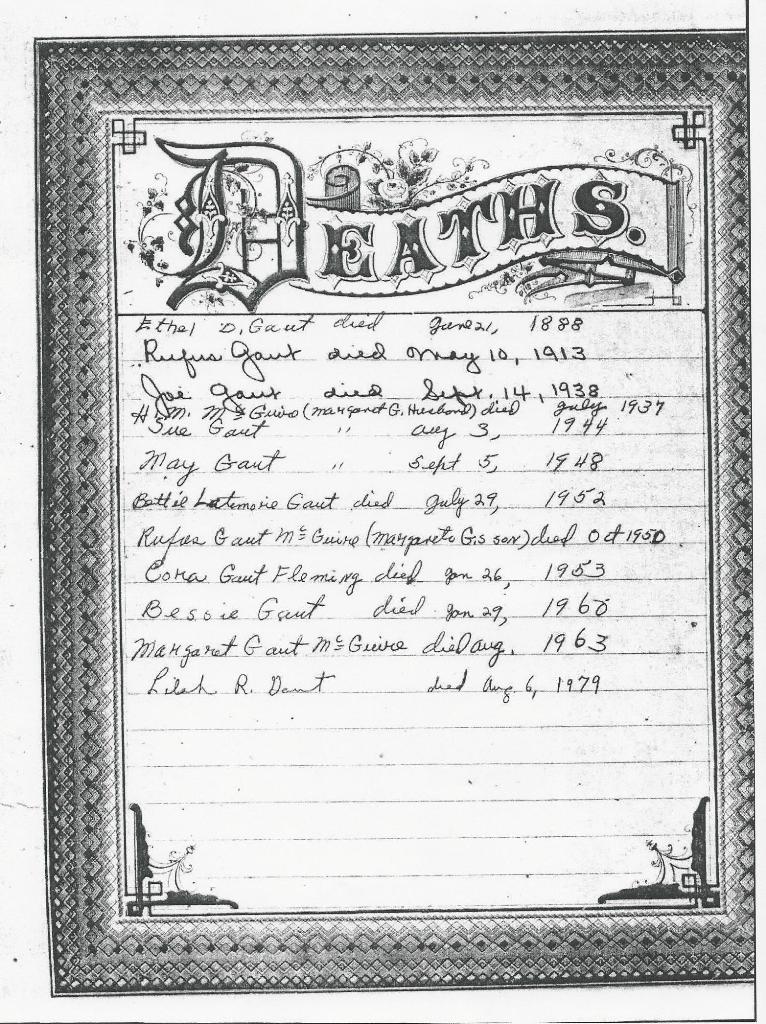 DEATHS.
Ethel D. Gaut died June 21, 1888
Rufus Gaut died May 10, 1913
Joe Gaut died Sept. 14, 1938
H.M. McGuire (Margaret G. Husband) died July 1937
Sue Gaut " Aug 3, 1944
May Gaut " Sept 5, 1948
Bettie Latimore Gaut died July 29, 1952
Rufus Gaut McGuire (Margarets G.s son) died Oct 1950
Cora Gaut Fleming died Jan 26, 1953
Bessie Gaut died Jan 29, 1960
Margaret Gaut McGuire died Aug. 1963
Lilah R. died Aug 6, 1979